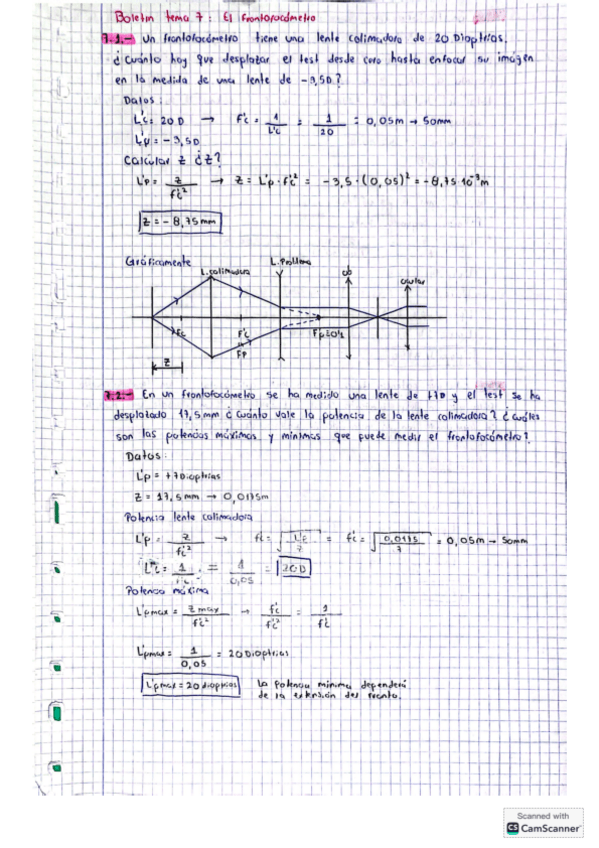 Boletín tema 7: El Frontofocómetro
7.1.- Un frontofocómetro tiene una lente colimadora de 20 Dioptrías.
¿Cuánto hay que desplazar el test desde cero hasta enfocar su imagen
en la medida de una lente de -3,5D?
Datos:
L'c = 20 D → f'c = 1/L'c = 1/20 = 0,05m → 50mm
L'p = -3,5D
Calcular z ¿z?
L'p = z/f'c² → z = L'p · f'c² = -3,5 · (0,05)² = -8,75·10⁻³m
z = -8,75mm
Gráficamente
L. Problema
L. colimadora
ocular
Fc
F'c
Fp
z
7.2.- En un frontofocómetro se ha medido una lente de +7D y el test se ha
desplazado 17,5mm ¿cuánto vale la potencia de la lente colimadora? ¿cuáles
son las potencias máximas y mínimas que puede medir el frontofocómetro?
Datos:
L'p = +7Dioptrías
z = 17,5mm → 0,0175m
Potencia lente colimadora
L'p = z/f'c² → f'c = √(L'p/z) = f'c = √(0,0175/7) = 0,05m → 50mm
L'c = 1/f'c = 1/0,05 = 20D
Potencia máxima
L'pmax = zmax/f'c² → f'c/f'c² = 1/f'c
L'pmax = 1/0,05 = 20Dioptrías
L'pmax = 20 dioptrías
La potencia mínima dependerá
de la extensión del
Scanned with
CS CamScanner